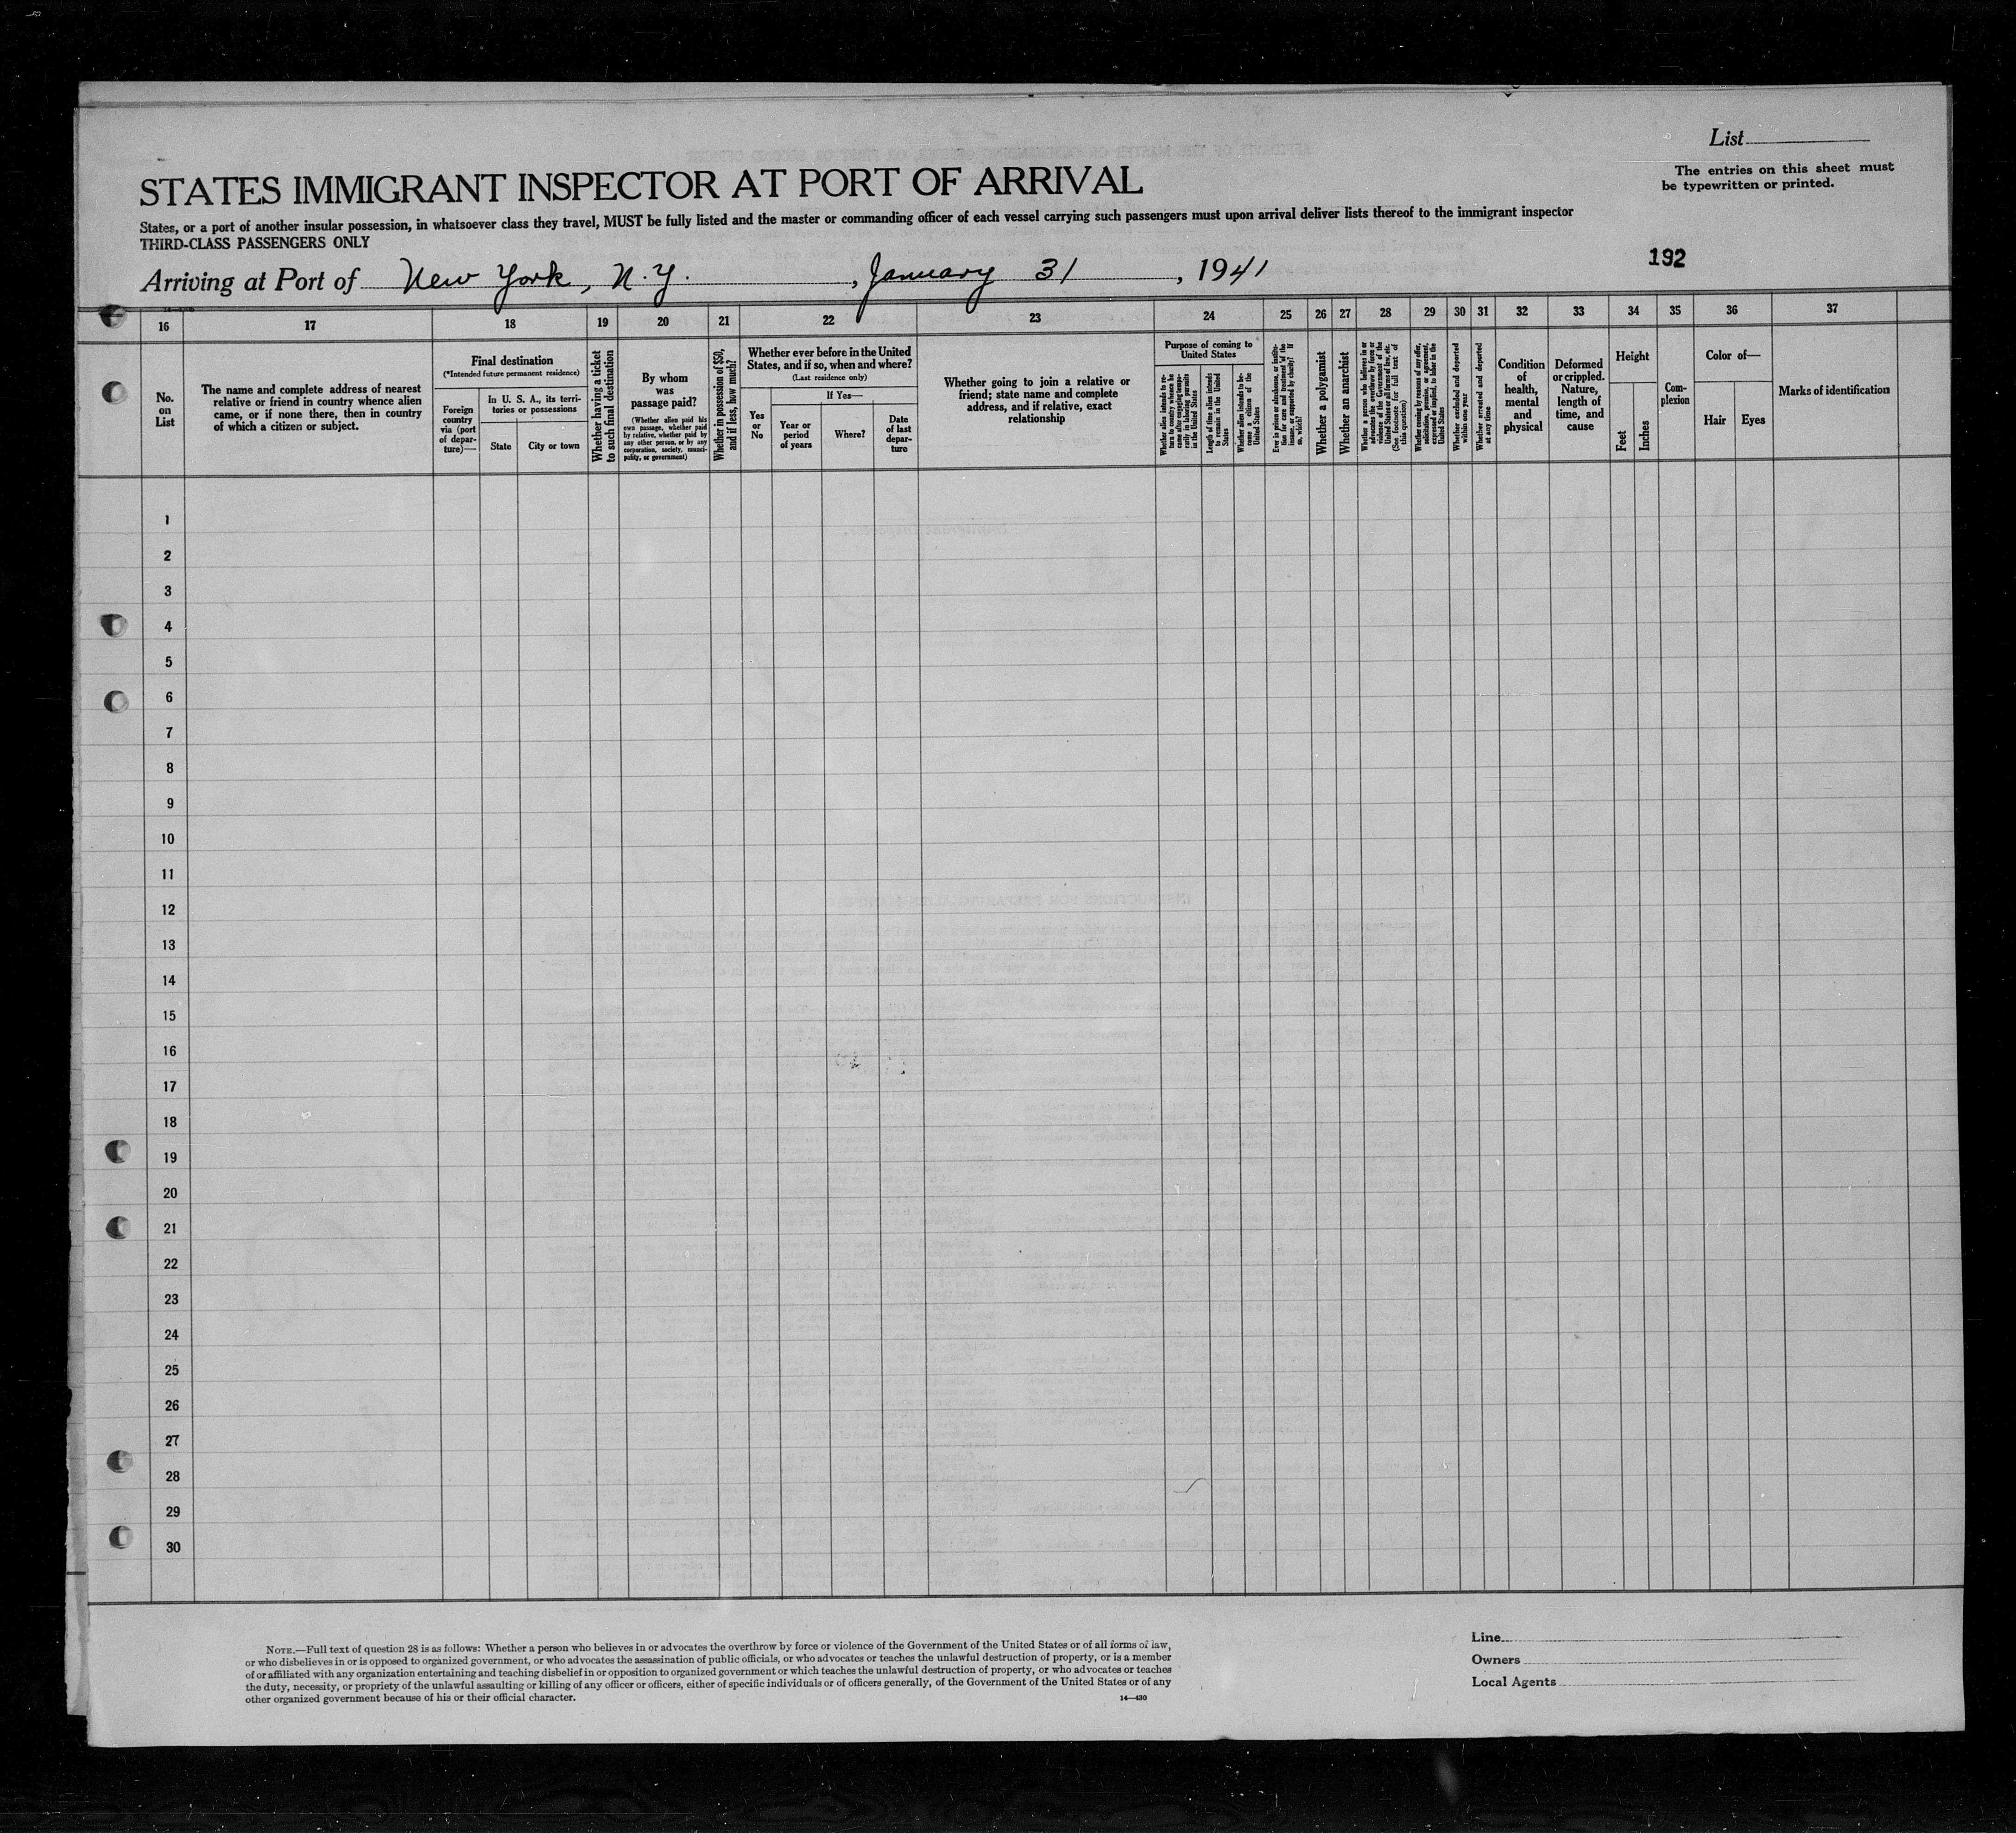 List
The entries on this sheet must
be typewritten or printed.
STATES IMMIGRANT INSPECTOR AT PORT OF ARRIVAL
States, or a port of another insular possession, in whatsoever class they travel, MUST be fully listed and the master or commanding officer of each vessel carrying such passengers must upon arrival deliver lists thereof to the immigrant inspector
THIRD-CLASS PASSENGERS ONLY
192
Arriving at Port of New York, N.Y., January 31, 1941
16 17 18 19 20 21 22 23 24 25 26 27 28 29 30 31 32 33 34 35 36 37
No.
on
List
The name and complete address of nearest
relative or friend in country whence alien
came, or if none there, then in country
of which a citizen or subject.
Final destination
(*Intended future permanent residence)
Foreign
country
via (port
of depar-
ture)—
In U. S. A., its terri-
tories or possessions
State
City or town
Whether having a ticket
to such final destination
By whom
was
passage paid?
(Whether alien paid his
own passage, whether paid
by relative, whether paid by
any other person, or by any
corporation, society, munici-
pality, or government)
Whether in possession of $50,
and if less, how much?
Whether ever before in the United
States, and if so, when and where?
(Last residence only)
Yes
or
No
If Yes—
Year or
period
of years
Where?
Date
of last
depar-
ture
Whether going to join a relative or
friend; state name and complete
address, and if relative, exact
relationship
Purpose of coming to
United States
Whether alien intends to re-
turn to country whence he
came after engaging tempo-
rarily in laboring pursuits
in the United States
Length of time alien intends
to remain in the United
States
Whether alien intends to be-
come a citizen of the
United States
Ever in prison or almshouse, or institu-
tion for care and treatment of the
insane, or supported by charity? If
so, which?
Whether a polygamist
Whether an anarchist
Whether a person who believes in or
advocates the overthrow by force or
violence of the Government of the
United States or all forms of law, etc.
(See footnote for full text of
this question)
Whether coming by reasons of any offer,
solicitation, promise, or agreement,
expressed or implied, to labor in the
United States
Whether excluded and deported
within one year
Whether arrested and deported
at any time
Condition
of
health,
mental
and
physical
Deformed
or crippled.
Nature,
length of
time, and
cause
Height
Feet
Inches
Com-
plexion
Color of—
Hair
Eyes
Marks of identification
1
2
3
4
5
6
7
8
9
10
11
12
13
14
15
16
17
18
19
20
21
22
23
24
25
26
27
28
29
30
NOTE.—Full text of question 28 is as follows: Whether a person who believes in or advocates the overthrow by force or violence of the Government of the United States or of all forms of law,
or who disbelieves in or is opposed to organized government, or who advocates the assassination of public officials, or who advocates or teaches the unlawful destruction of property, or is a member
of or affiliated with any organization entertaining and teaching disbelief in or opposition to organized government or which teaches the unlawful destruction of property, or who advocates or teaches
the duty, necessity, or propriety of the unlawful assaulting or killing of any officer or officers, either of specific individuals or of officers generally, of the Government of the United States or of any
other organized government because of his or their official character.
14—430
Line
Owners
Local Agents